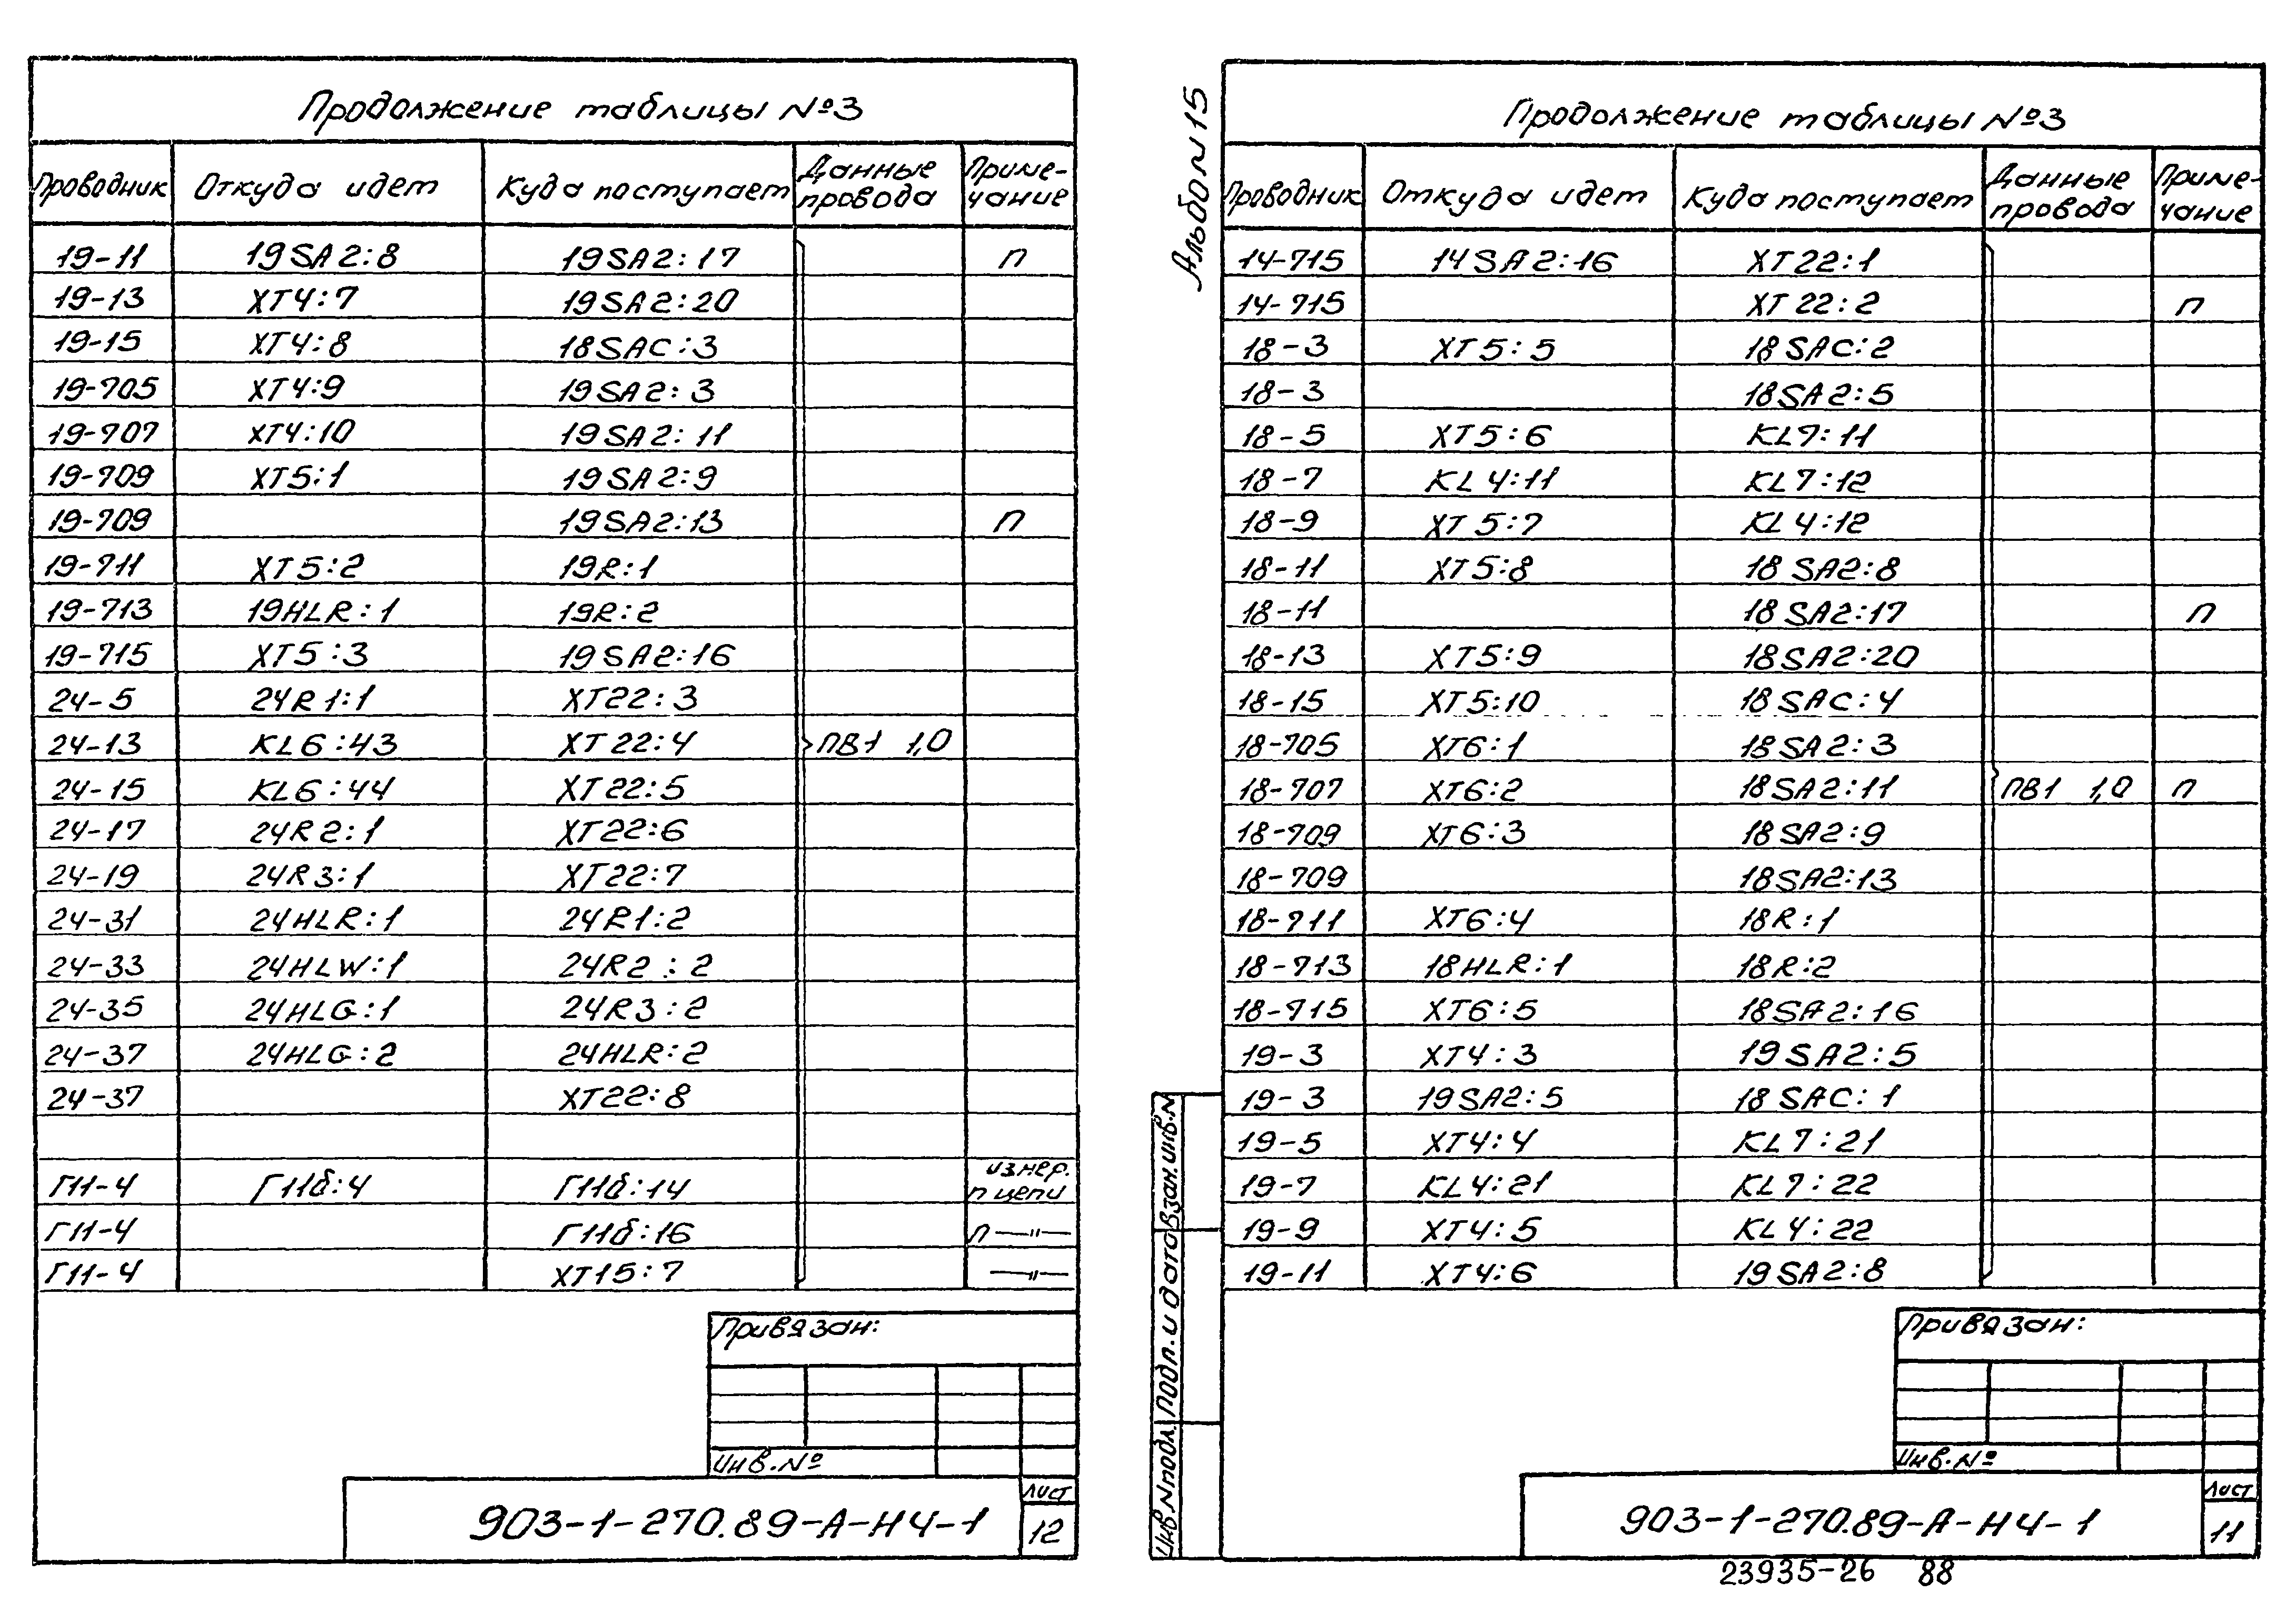 Продолжение таблицы №3
Проводник Откуда идет Куда поступает Данные провода Приме-чание
19-11 19SA2:8 19SA2:17 п
19-13 XT4:7 19SA2:20
19-15 XT4:8 18SAC:3
19-705 XT4:9 19SA2:3
19-707 XT4:10 19SA2:11
19-709 XT5:1 19SA2:9
19-709 19SA2:13 п
19-711 XT5:2 19R:1
19-713 19HLR:1 19R:2
19-715 XT5:3 19SA2:16
24-5 24R1:1 XT22:3
24-13 KL6:43 XT22:4 ПВ1 1,0
24-15 KL6:44 XT22:5
24-17 24R2:1 XT22:6
24-19 24R3:1 XT22:7
24-31 24HLR:1 24R1:2
24-33 24HLW:1 24R2:2
24-35 24HLG:1 24R3:2
24-37 24HLG:2 24HLR:2
24-37 XT22:8
Г11-4 Г11б:4 Г11б:14 измер. п цепи
Г11-4 Г11б:16 п —"—
Г11-4 XT15:7 —"—
Привязан:
Инв.№
903-1-270.89-А-НЧ-1
Лист
12
Альбом 15
Продолжение таблицы №3
Проводник Откуда идет Куда поступает Данные провода Приме-чание
14-715 14SA2:16 XT22:1
14-715 XT22:2 п
18-3 XT5:5 18SAC:2
18-3 18SA2:5
18-5 XT5:6 KL7:11
18-7 KL4:11 KL7:12
18-9 XT5:7 KL4:12
18-11 XT5:8 18SA2:8
18-11 18SA2:17 п
18-13 XT5:9 18SA2:20
18-15 XT5:10 18SAC:4
18-705 XT6:1 18SA2:3
18-707 XT6:2 18SA2:11 ПВ1 1,0 п
18-709 XT6:3 18SA2:9
18-709 18SA2:13
18-711 XT6:4 18R:1
18-713 18HLR:1 18R:2
18-715 XT6:5 18SA2:16
19-3 XT4:3 19SA2:5
19-3 19SA2:5 18SAC:1
19-5 XT4:4 KL7:21
19-7 KL4:21 KL7:22
19-9 XT4:5 KL4:22
19-11 XT4:6 19SA2:8
Инв.№подл. Подп. и дата Взан.инв.№
Привязан:
Инв.№
903-1-270.89-А-НЧ-1
Лист
11
23935-26 88